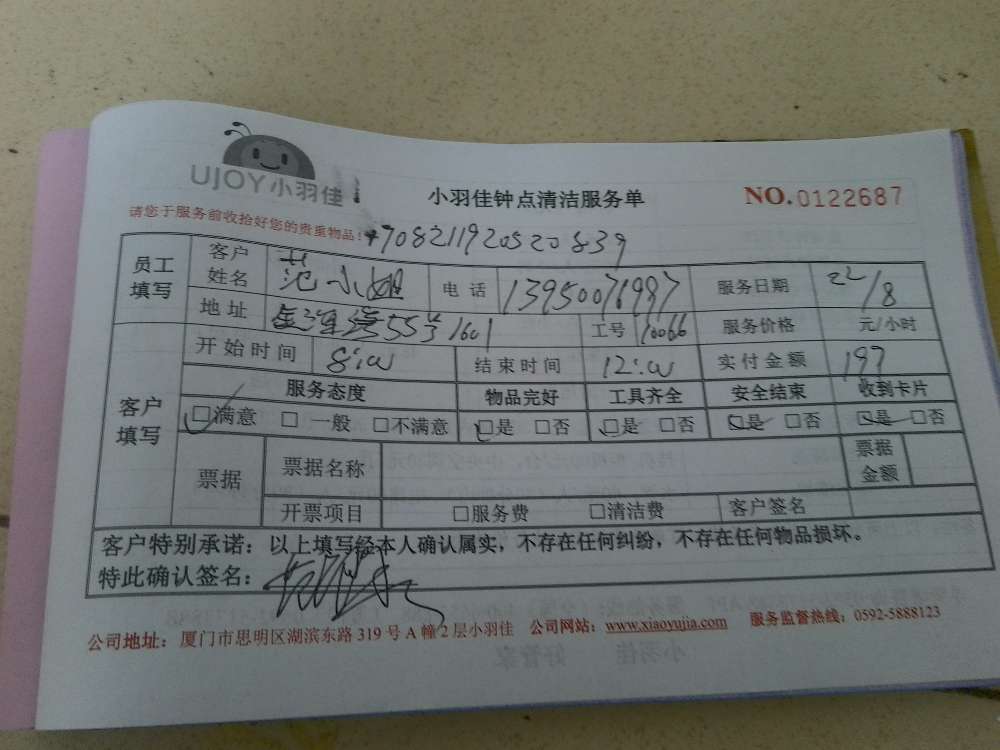 UJOY小羽佳
小羽佳钟点清洁服务单
NO.0122687
请您于服务前收拾好您的贵重物品!
1708211920520839
员工填写 客户姓名 范小姐 电话 13950076987 服务日期 22/8
地址 55号1601 工号 10066 服务价格 元/小时
客户填写 开始时间 8:00 结束时间 12:00 实付金额 197
服务态度 物品完好 工具齐全 安全结束 收到卡片
□满意 □一般 □不满意 □是 □否 □是 □否 □是 □否 □是 □否
票据 票据名称 票据金额
开票项目 □服务费 □清洁费 客户签名
客户特别承诺：以上填写经本人确认属实，不存在任何纠纷，不存在任何物品损坏。
特此确认签名：
公司地址：厦门市思明区湖滨东路 319 号 A 幢 2 层小羽佳 公司网站：www.xiaoyujia.com 服务监督热线：0592-5888123